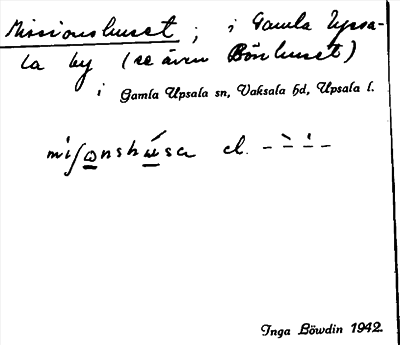 Missionshuset ; i Gamla Upsa-
la by (se även Bönhuset)
i Gamla Upsala sn, Vaksala hd, Upsala l.
miʃωnshɯ́sa el.
Inga Löwdin 1942.